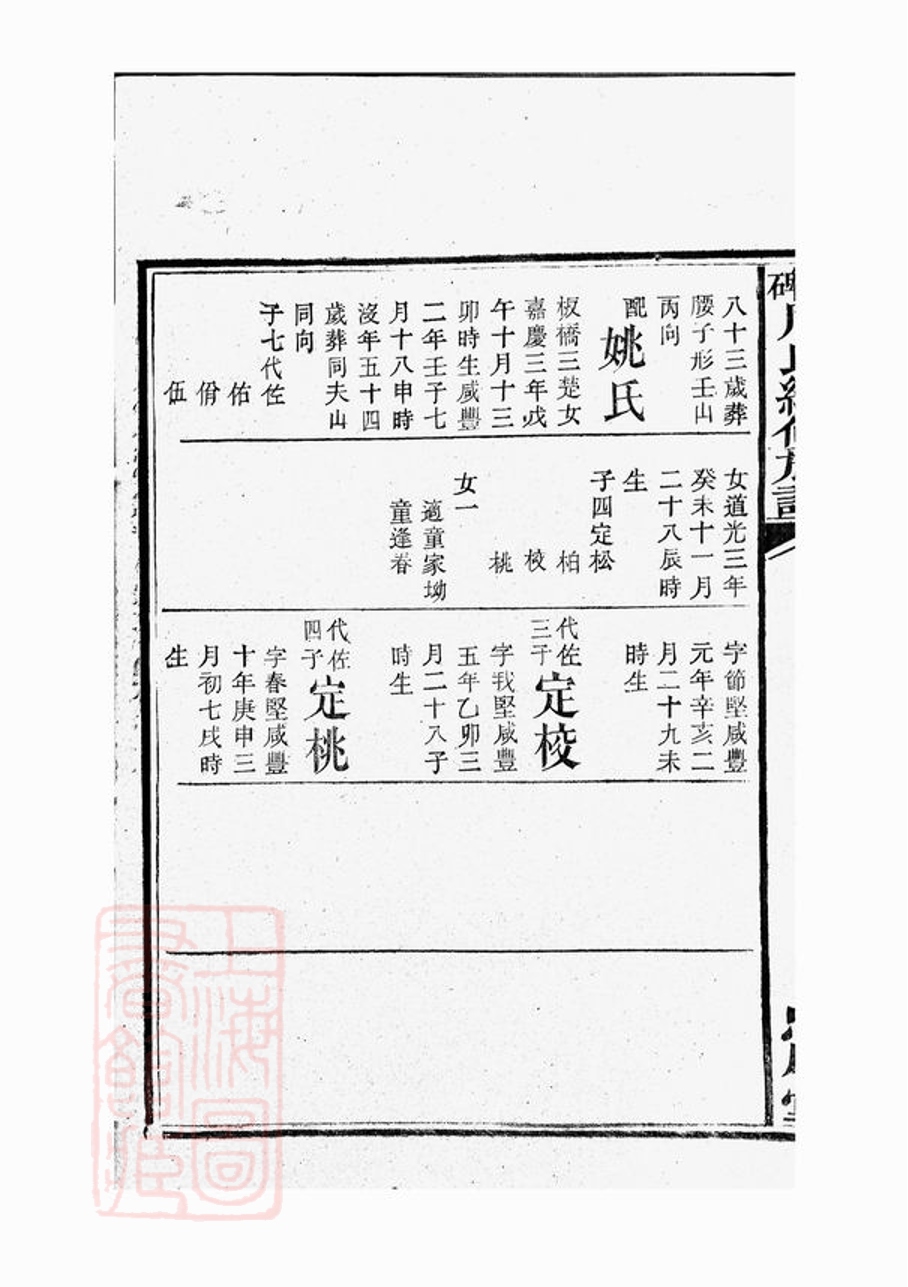 八十三歲葬
腰子形壬山
丙向
配
姚氏
板橋三楚女
嘉慶三年戊
午十月十三
卯時生咸豐
二年壬子七
月十八申時
沒年五十四
歲葬同夫山
同向
子七代佐
佑
伯
伍
女道光三年
癸未十一月
二十八辰時
生
子四定松
柏
校
桃
女一
適童家坳
童逢春
字節堅咸豐
元年辛亥二
月二十九未
時生
代佐
三子
定校
字我堅咸豐
五年乙卯三
月二十八子
時生
代佐
四子
定桃
字春堅咸豐
十年庚申三
月初七戌時
生
上海圖
書館藏